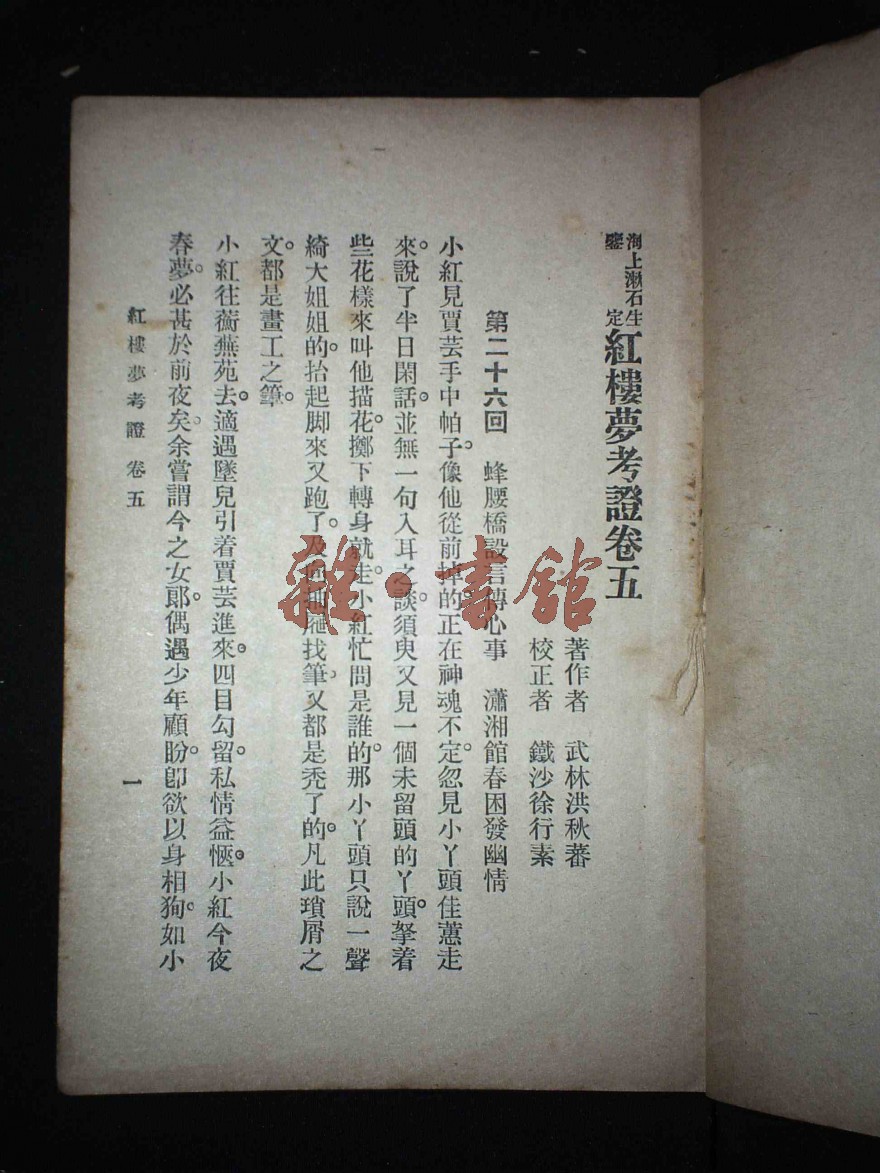 海上漱石生
鑒定
紅樓夢考證卷五
著作者　武林洪秋蕃
校正者　鐵沙徐行素
第二十六回　蜂腰橋設言傳心事　瀟湘館春困發幽情
小紅見賈芸手中帕子。像他從前掉的正在神魂不定。忽見小丫頭佳蕙走
來。說了半日閑話。並無一句入耳之談。須臾又見一個未留頭的丫頭。拏着
些花樣來叫他描花。擲下轉身就走。小紅忙問是誰的。那小丫頭只說一聲
綺大姐姐的。抬起脚來又跑了。及向抽屜找筆。又都是禿了的。凡此瑣屑之
文。都是畫工之筆。
小紅往蘅蕪苑去。適遇墜兒引着賈芸進來。四目勾留。私情益愜。小紅今夜
春夢。必甚於前夜矣。余嘗謂今之女郎。偶遇少年顧盼。卽欲以身相狥。如小
紅樓夢考證　卷五
一
雜·書館